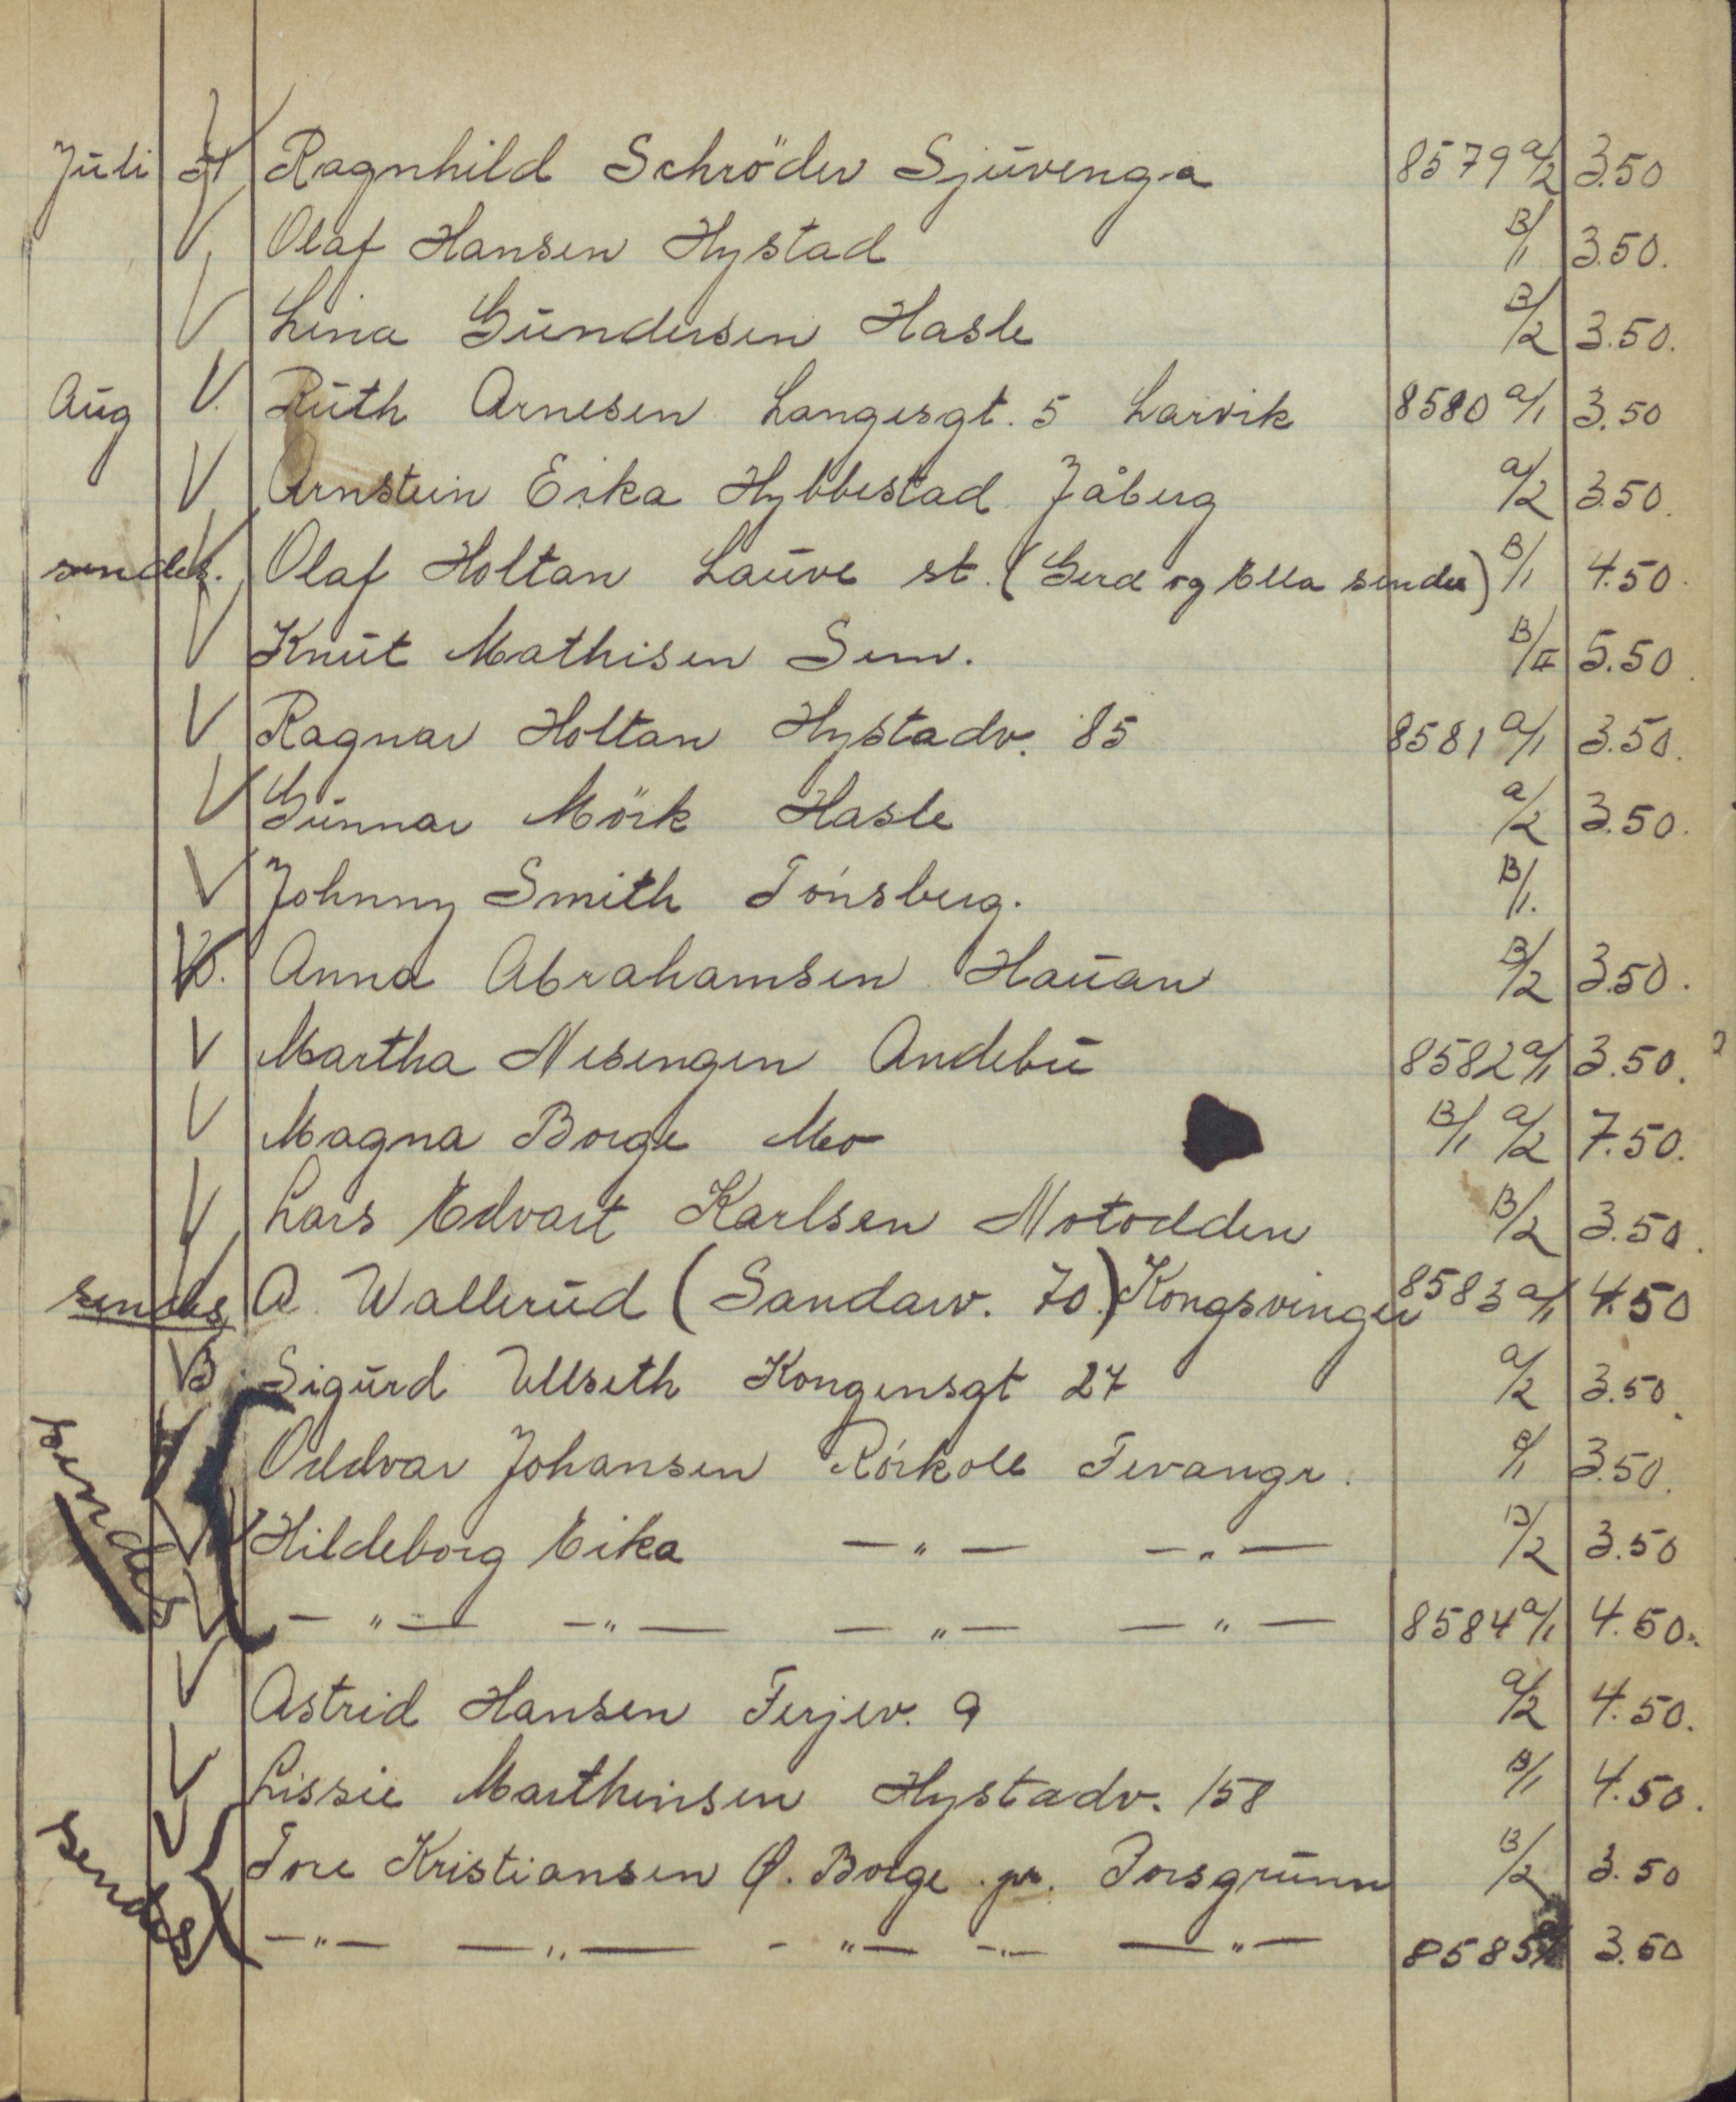 Juli 31 Ragnhild Schröder Sjuvenga 8579 a/2 3.50
V Olaf Hansen Hystad B/1 3.50.
V Lina Gundersen Hasle B/2 3.50.
Aug V. Ruth Arnesen Langesgt. 5 Larvik 8580 a/1 3.50
V Arnstein Eika Hybbestad Jåberg a/2 3.50.
sendes. V Olaf Holtan Lauve st. (Gerd og Ella sender) B/1 4.50.
V Knut Mathisen Sem. B/II 5.50.
V Ragnar Holtan Hystadv. 85 8581 a/1 3.50.
V Gunnar Mörk Hasle a/2 3.50.
V Johnny Smith Tónsberg. B/1.
V Anna Abrahamsen Hauan B/2 3.50.
V Martha Nesengen Andebu 8582 a/1 3.50.
V Magna Borge Mo B/1 a/2 7.50.
V Lars Edvart Karlsen Notodden B/2 3.50.
sendes V A. Wallerud (Sandarv. 70.) Kongsvinger 8583 a/1 4.50
VB Sigurd Ullseth Kongensgt 27 a/2 3.50.
sendes V { Oddvar Johansen Rórkoll Tevangr. B/1 3.50.
V Hildeborg Eika — " — — " — B/2 3.50
V — " — — " — — " — — " — 8584 a/1 4.50.
V Astrid Hansen Ferjev. 9 a/2 4.50.
V Lissie Marthinsen Hystadv. 158 B/1 4.50.
sendes V { Tore Kristiansen Ø. Borge pr. Porsgrunn B/2 3.50
V — " — — " — - " — - " — — " — 8585 3.50